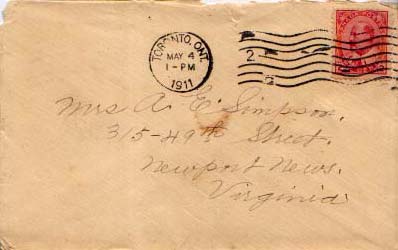 TORONTO, ONT.
MAY 4
1-PM
1911
2
CANADA POSTAGE
Mrs A. E. Simpson.
315-49th Street.
Newport News.
Virginia.